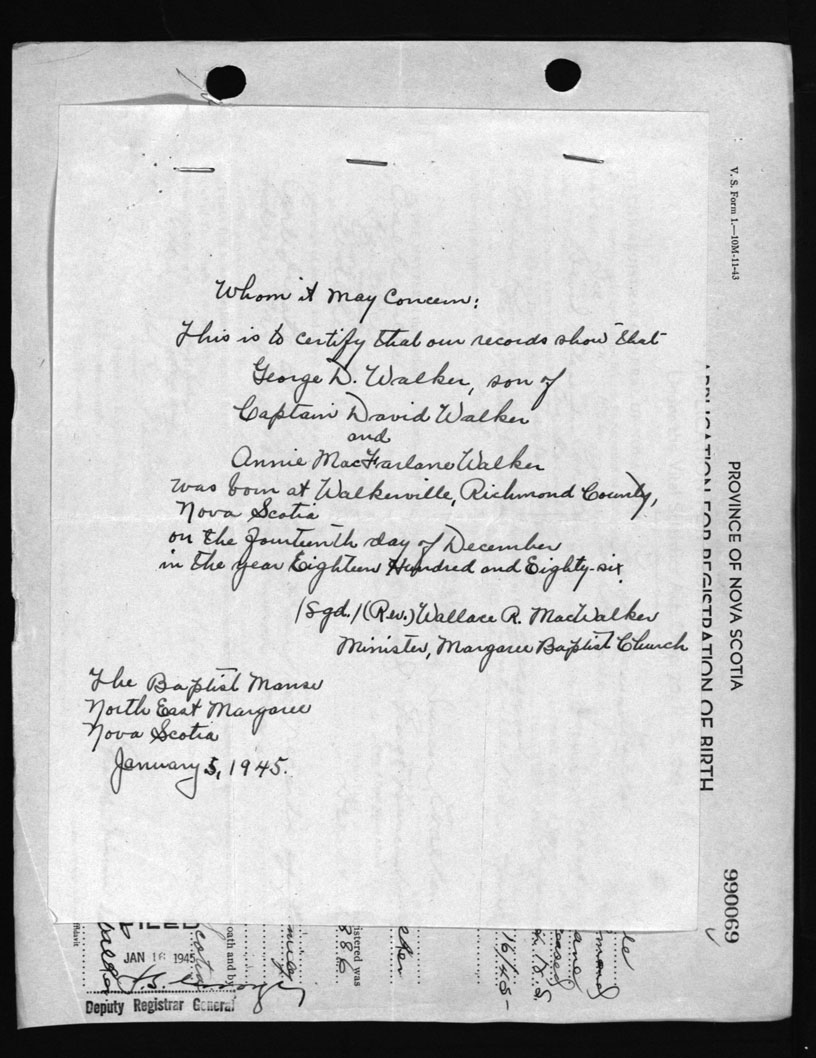 Whom it may Concern:
This is to certify that our records show that
George D. Walker, son of
Captain David Walker
and
Annie MacFarlane Walker
was born at Walkerville, Richmond County,
Nova Scotia
on the fourteenth day of December
in the year Eighteen Hundred and Eighty-six.
/Sgd./(Rev.) Wallace R. MacWalker
Minister, Margaree Baptist Church
The Baptist Manse
North East Margaree
Nova Scotia
January 5, 1945.
V. S. Form 1.—10M-11-43
PROVINCE OF NOVA SCOTIA
APPLICATION FOR REGISTRATION OF BIRTH
990069
FILED
JAN 16 1945
Deputy Registrar General
oath and by
istered was
886
ffidavit